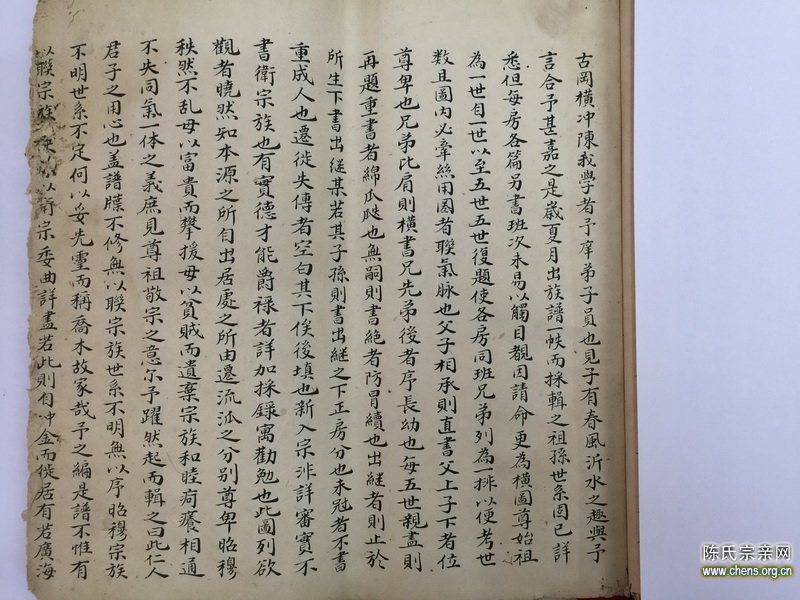 古岡橫冲陳我學者予庠弟子員也見子有春風沂水之趣與予
言合予甚嘉之是歲夏月出族譜一帙而採輯之祖孫世系固已詳
悉但每房各篇另書班次未易以觸目覩因請命更為橫圖尊始祖
為一世自一世以至五世五世復題使各房同班兄弟列為一排以便考世
数且圖內必牽絲用圈者聯氣脉也父子相承則直書父上子下者位
尊卑也兄弟比肩則橫書兄先弟後者序長幼也每五世親盡則
再題重書者綿瓜瓞也無嗣則書絶者防冒續也出継者則止於
所生下書出継某若其子孫則書出継之下正房分也未冠者不書
重成人也遷徙失傳者空白其下俟後填也新入宗非詳審實不
書衛宗族也有實德才能爵祿者詳加採錄寓勸勉也此圖列欲
觀者曉然知本源之所自出居處之所由遷流派之分別尊卑昭穆
秩然不乱毋以富貴而攀援毋以貧賊而遺棄宗族和睦疴癢相通
不失同氣一体之義庶見尊祖敬宗之意尔予躍然起而輯之曰此仁人
君子之用心也盖譜牒不修無以聯宗族世系不明無以序昭穆宗族
不明世系不定何以妥先靈而稱喬木故家哉予之編是譜不惟有
以聯宗族 以 宗委曲詳盡若此則自冲金而徙居有若廣海
陈氏宗亲网
www.chens.org.cn